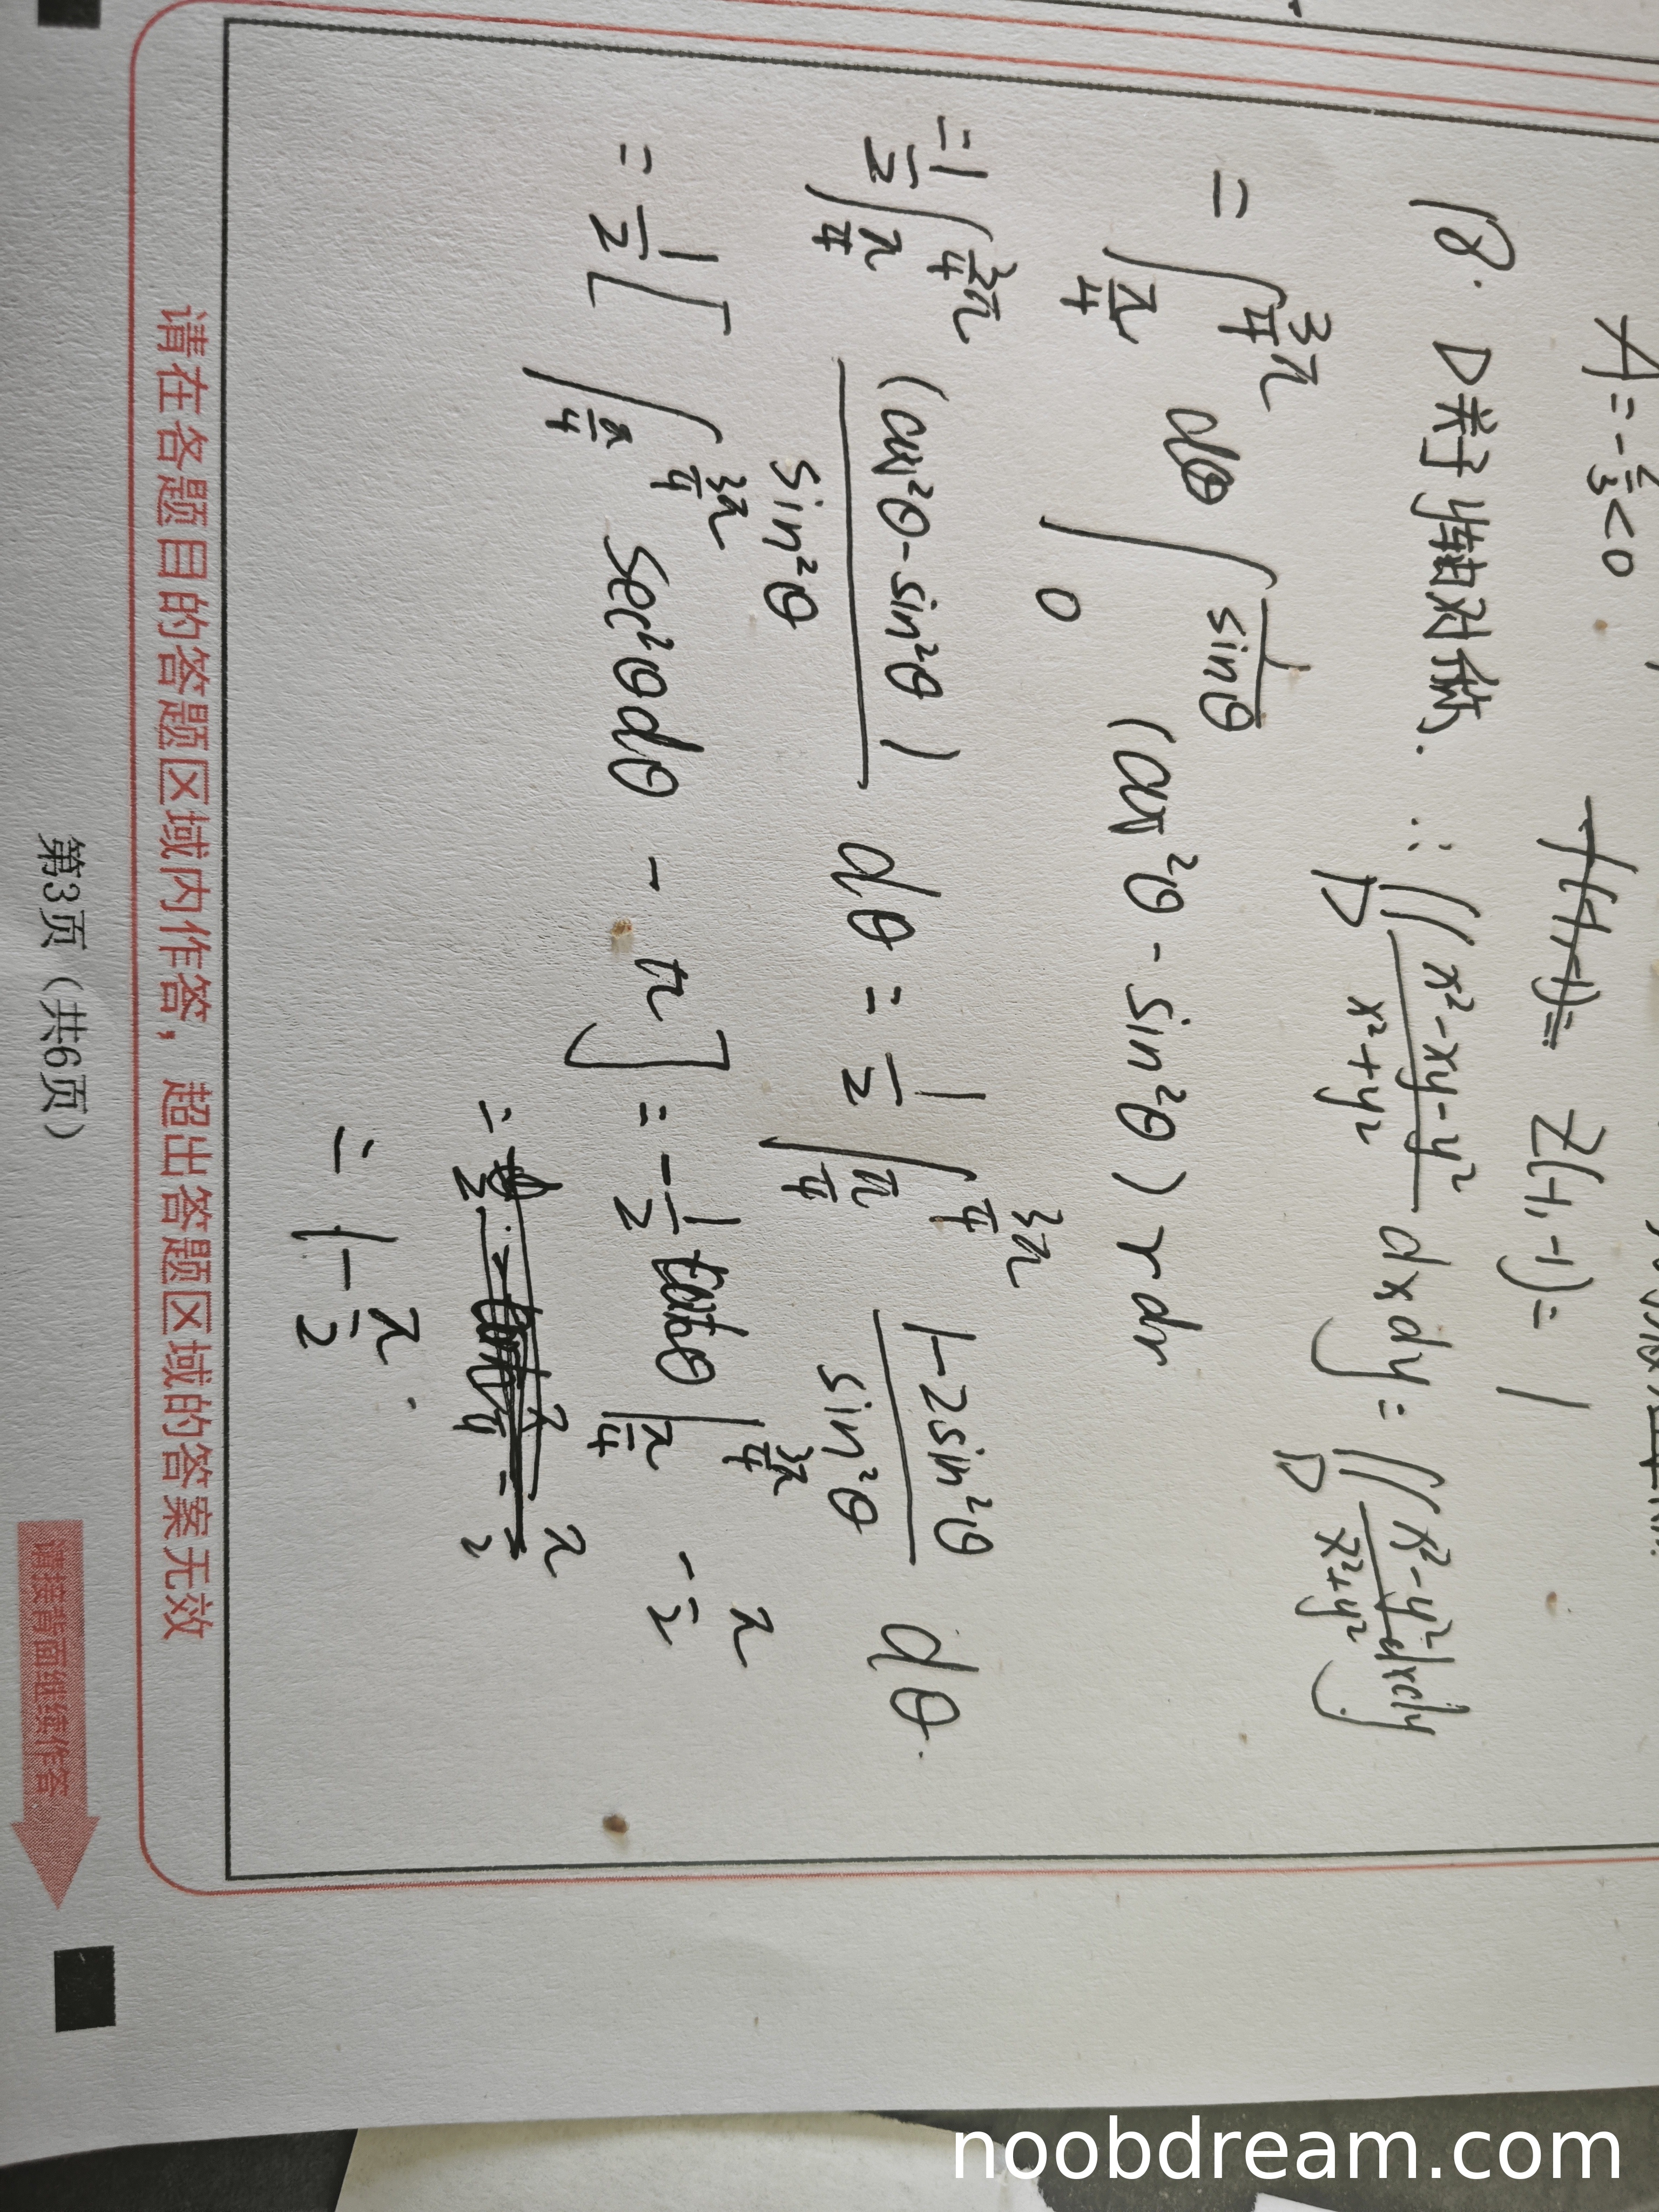 A = -\frac{2}{3} < 0
~~f(-1,-1)=~~ z(-1,-1) = 1
18. D关于y轴对称. ∴ ∬_D \frac{x²-xy-y²}{x²+y²} dxdy = ∬_D \frac{x²-y²}{x²+y²} dxdy
= ∫_{\frac{π}{4}}^{\frac{3π}{4}} dθ ∫_0^{\frac{1}{sinθ}} (cos²θ - sin²θ) r dr
= \frac{1}{2} ∫_{\frac{π}{4}}^{\frac{3π}{4}} \frac{(cos²θ - sin²θ)}{sin²θ} dθ = \frac{1}{2} ∫_{\frac{π}{4}}^{\frac{3π}{4}} \frac{1-2sin²θ}{sin²θ} dθ.
= \frac{1}{2} [ ∫_{\frac{π}{4}}^{\frac{3π}{4}} sec²θdθ - π ] = -\frac{1}{2} cotθ |_{\frac{π}{4}}^{\frac{3π}{4}} - \frac{π}{2}
=
= 1 - \frac{π}{2}.
请在各题目的答题区域内作答，超出答题区域的答案无效
第3页（共6页）
请接背面继续作答
noobdream.com